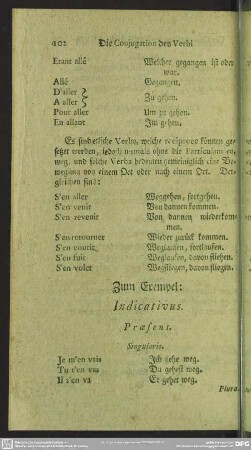 402 Die Conjugation des Verbi
Etant allé Welcher gegangen ist oder
war.
Allé Gegangen.
D'aller
A aller Zu gehen.
Pour aller Um zu gehen.
En allant Im gehen.
Es sind etliche Verba, welche reciproce können ge-
setzet werden, jedoch niemals ohne die Particulam en,
weg, und solche Verba bedeuten gemeiniglich eine Be-
wegung von einem Ort oder nach einem Ort. Der-
gleichen sind:
S'en aller Weggehen, fortgehen.
S'en venir Von dannen kommen.
S'en revenir Von dannen wiederkom-
men.
S'en retourner Wieder zurück kommen.
S'en courir Weglaufen, fortlaufen.
S'en fuir Weglaufen, davon fliehen.
S'en voler Wegfliegen, davon fliegen.
Zum Exempel:
Indicativus.
Præsens.
Singularis.
Je m'en vais Ich gehe weg.
Tu t'en vas Du gehest weg.
Il s'en va Er gehet weg.
Plura-